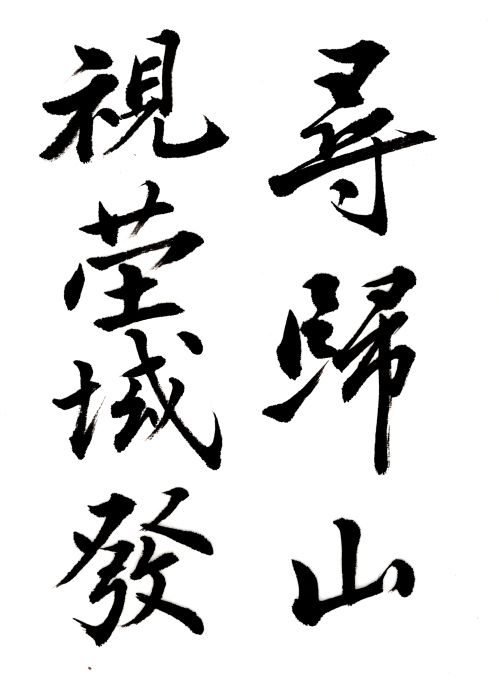 尋歸山
視茔域發